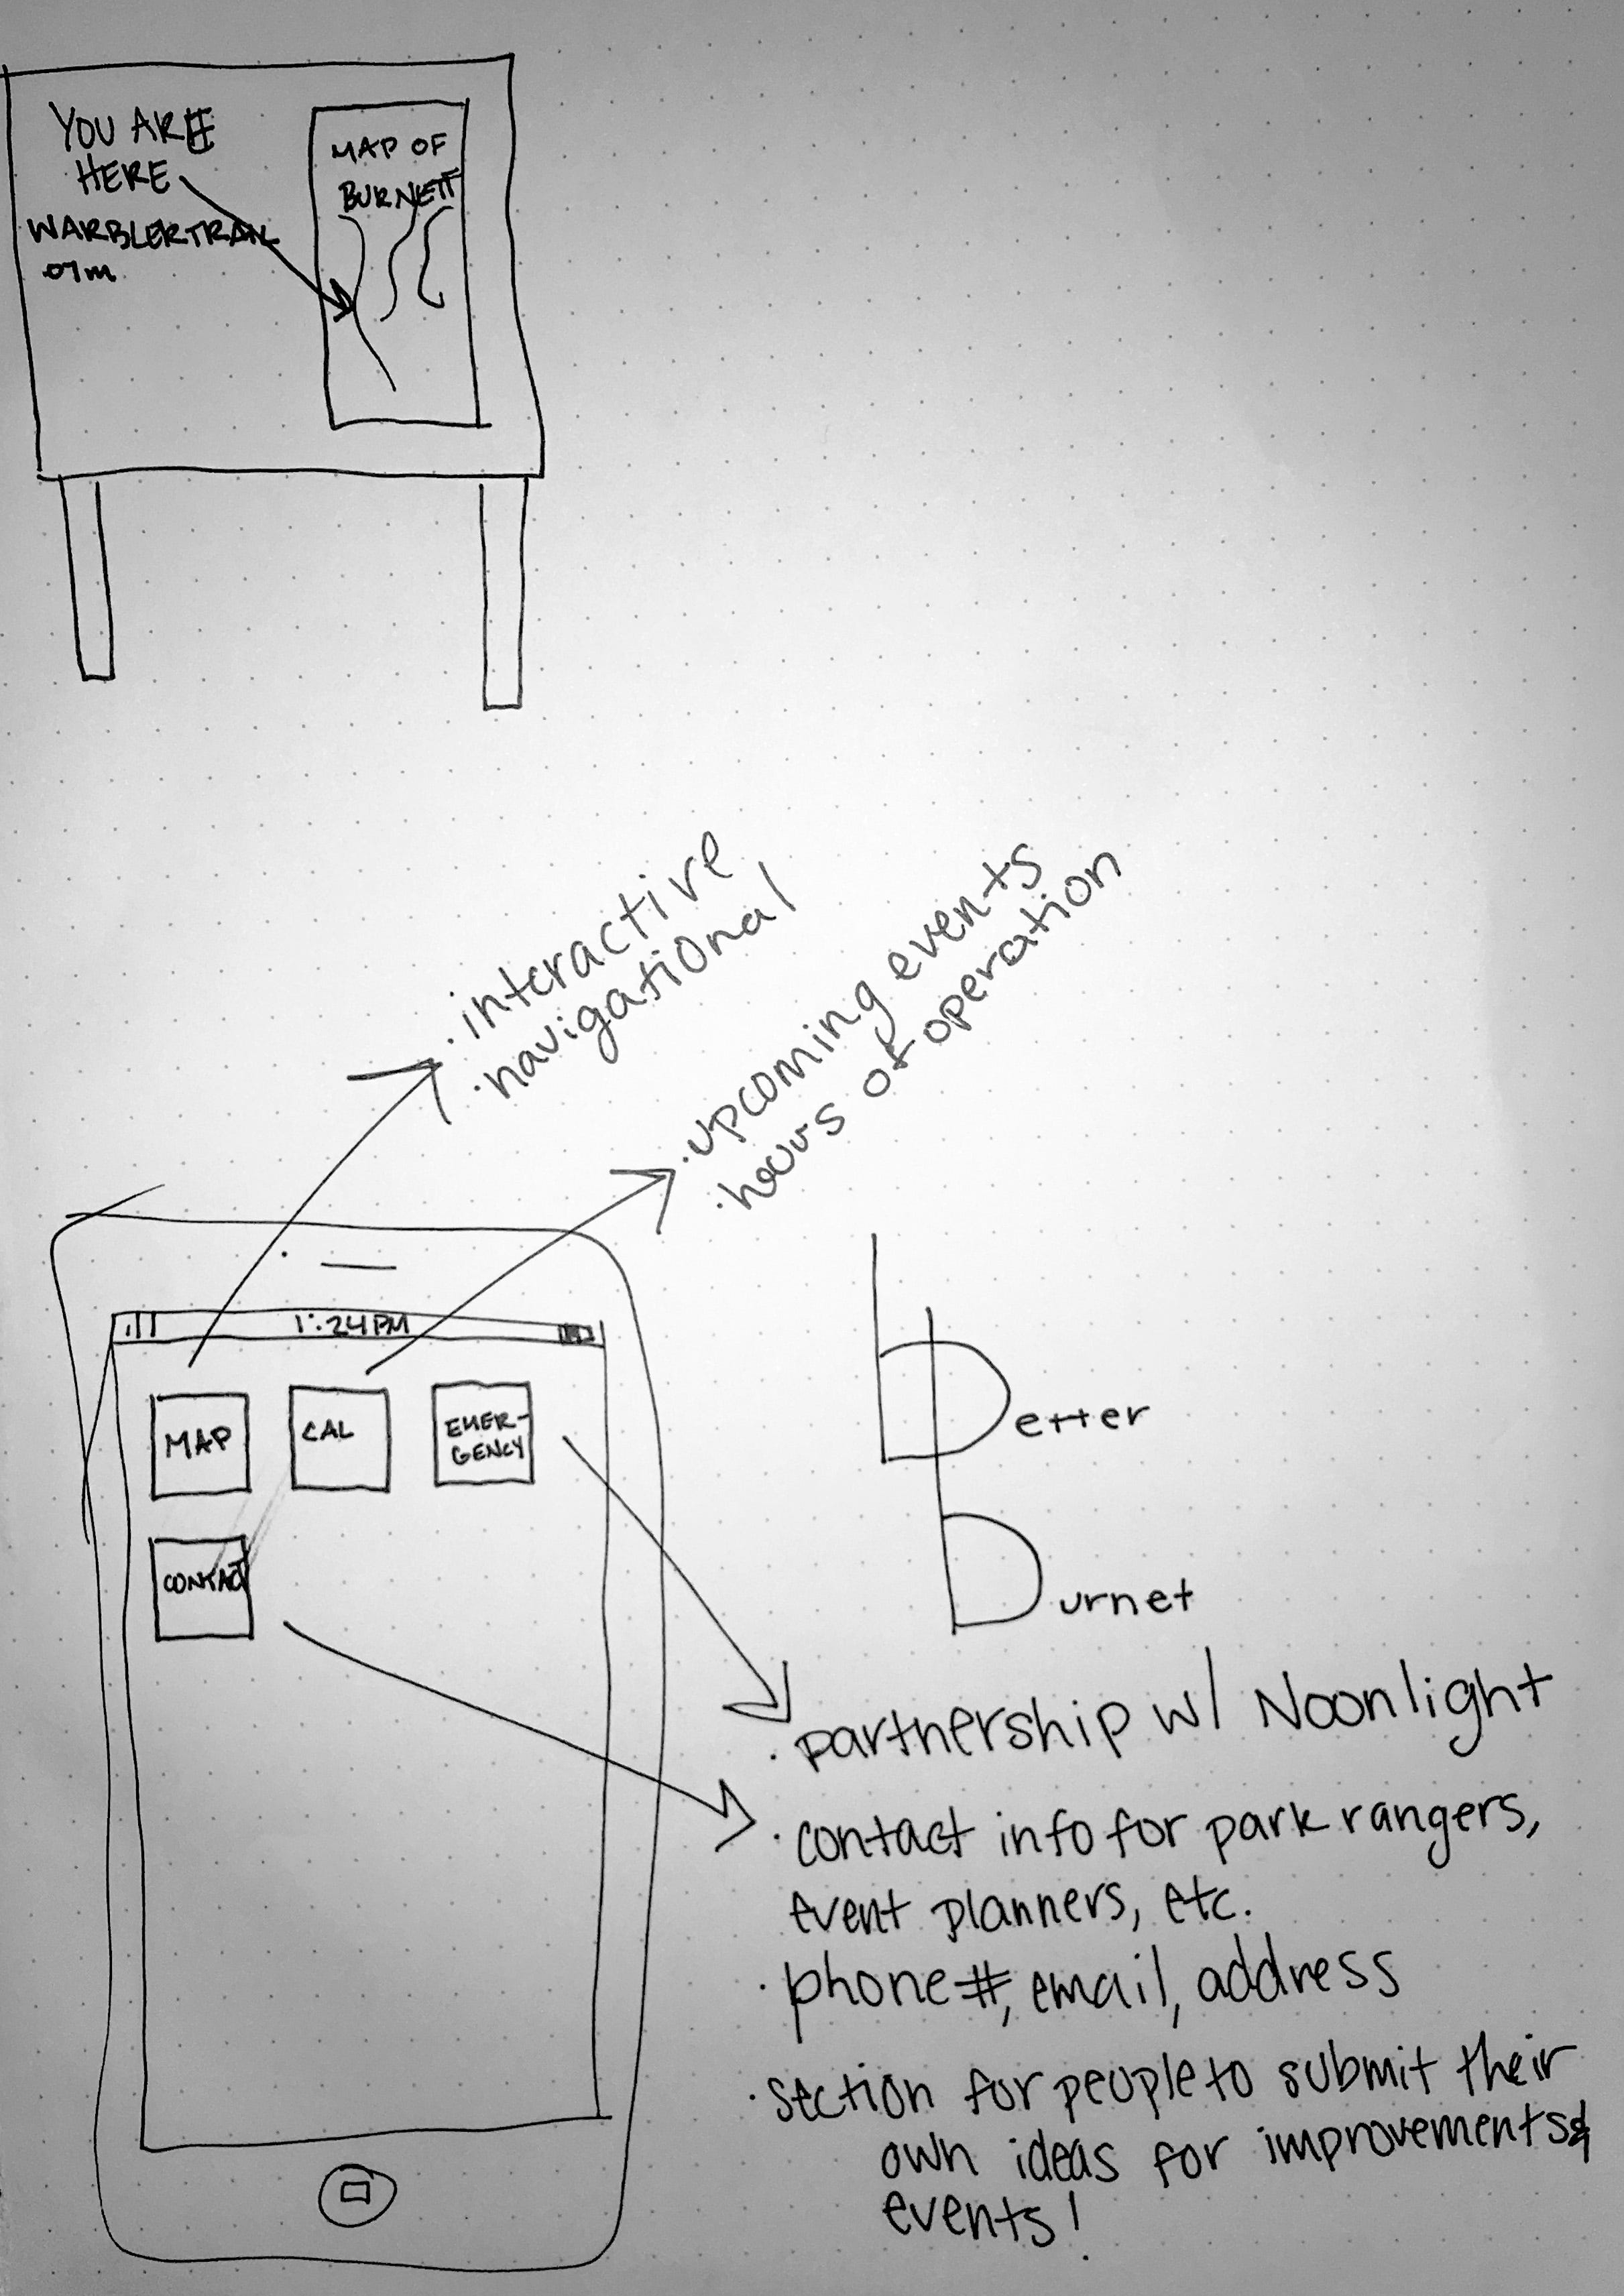 YOU ARE
HERE
WARBLER TRAIL
.07m
MAP OF
BURNETT
· interactive
· navigational
· upcoming events
· hours of operation
1:24 PM
MAP
CAL
EMER-
GENCY
CONTACT
better
burnet
· partnership w/ Noonlight
· contact info for park rangers,
event planners, etc.
· phone #, email, address
· section for people to submit their
own ideas for improvements &
events!